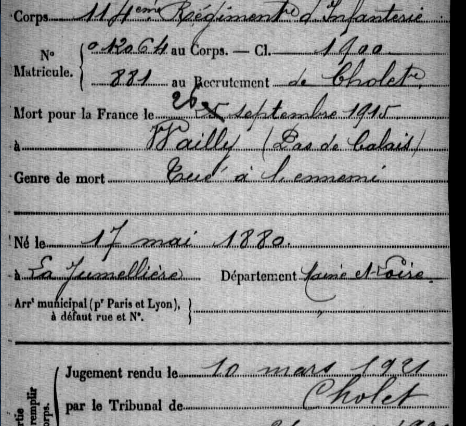 Corps 114eme Régiment d'Infanterie
N° Matricule. { 012064 au Corps. — Cl. 1900
881 au Recrutement de Cholet
Mort pour la France le 25 septembre 1915
à Wailly (Pas de Calais)
Genre de mort Tué à l'ennemi
Né le 17 mai 1880.
à La Jumellière Département Maine et Loire.
Arrt municipal (pr Paris et Lyon), à défaut rue et N°. } "
Jugement rendu le 10 mars 1921
par le Tribunal de Cholet